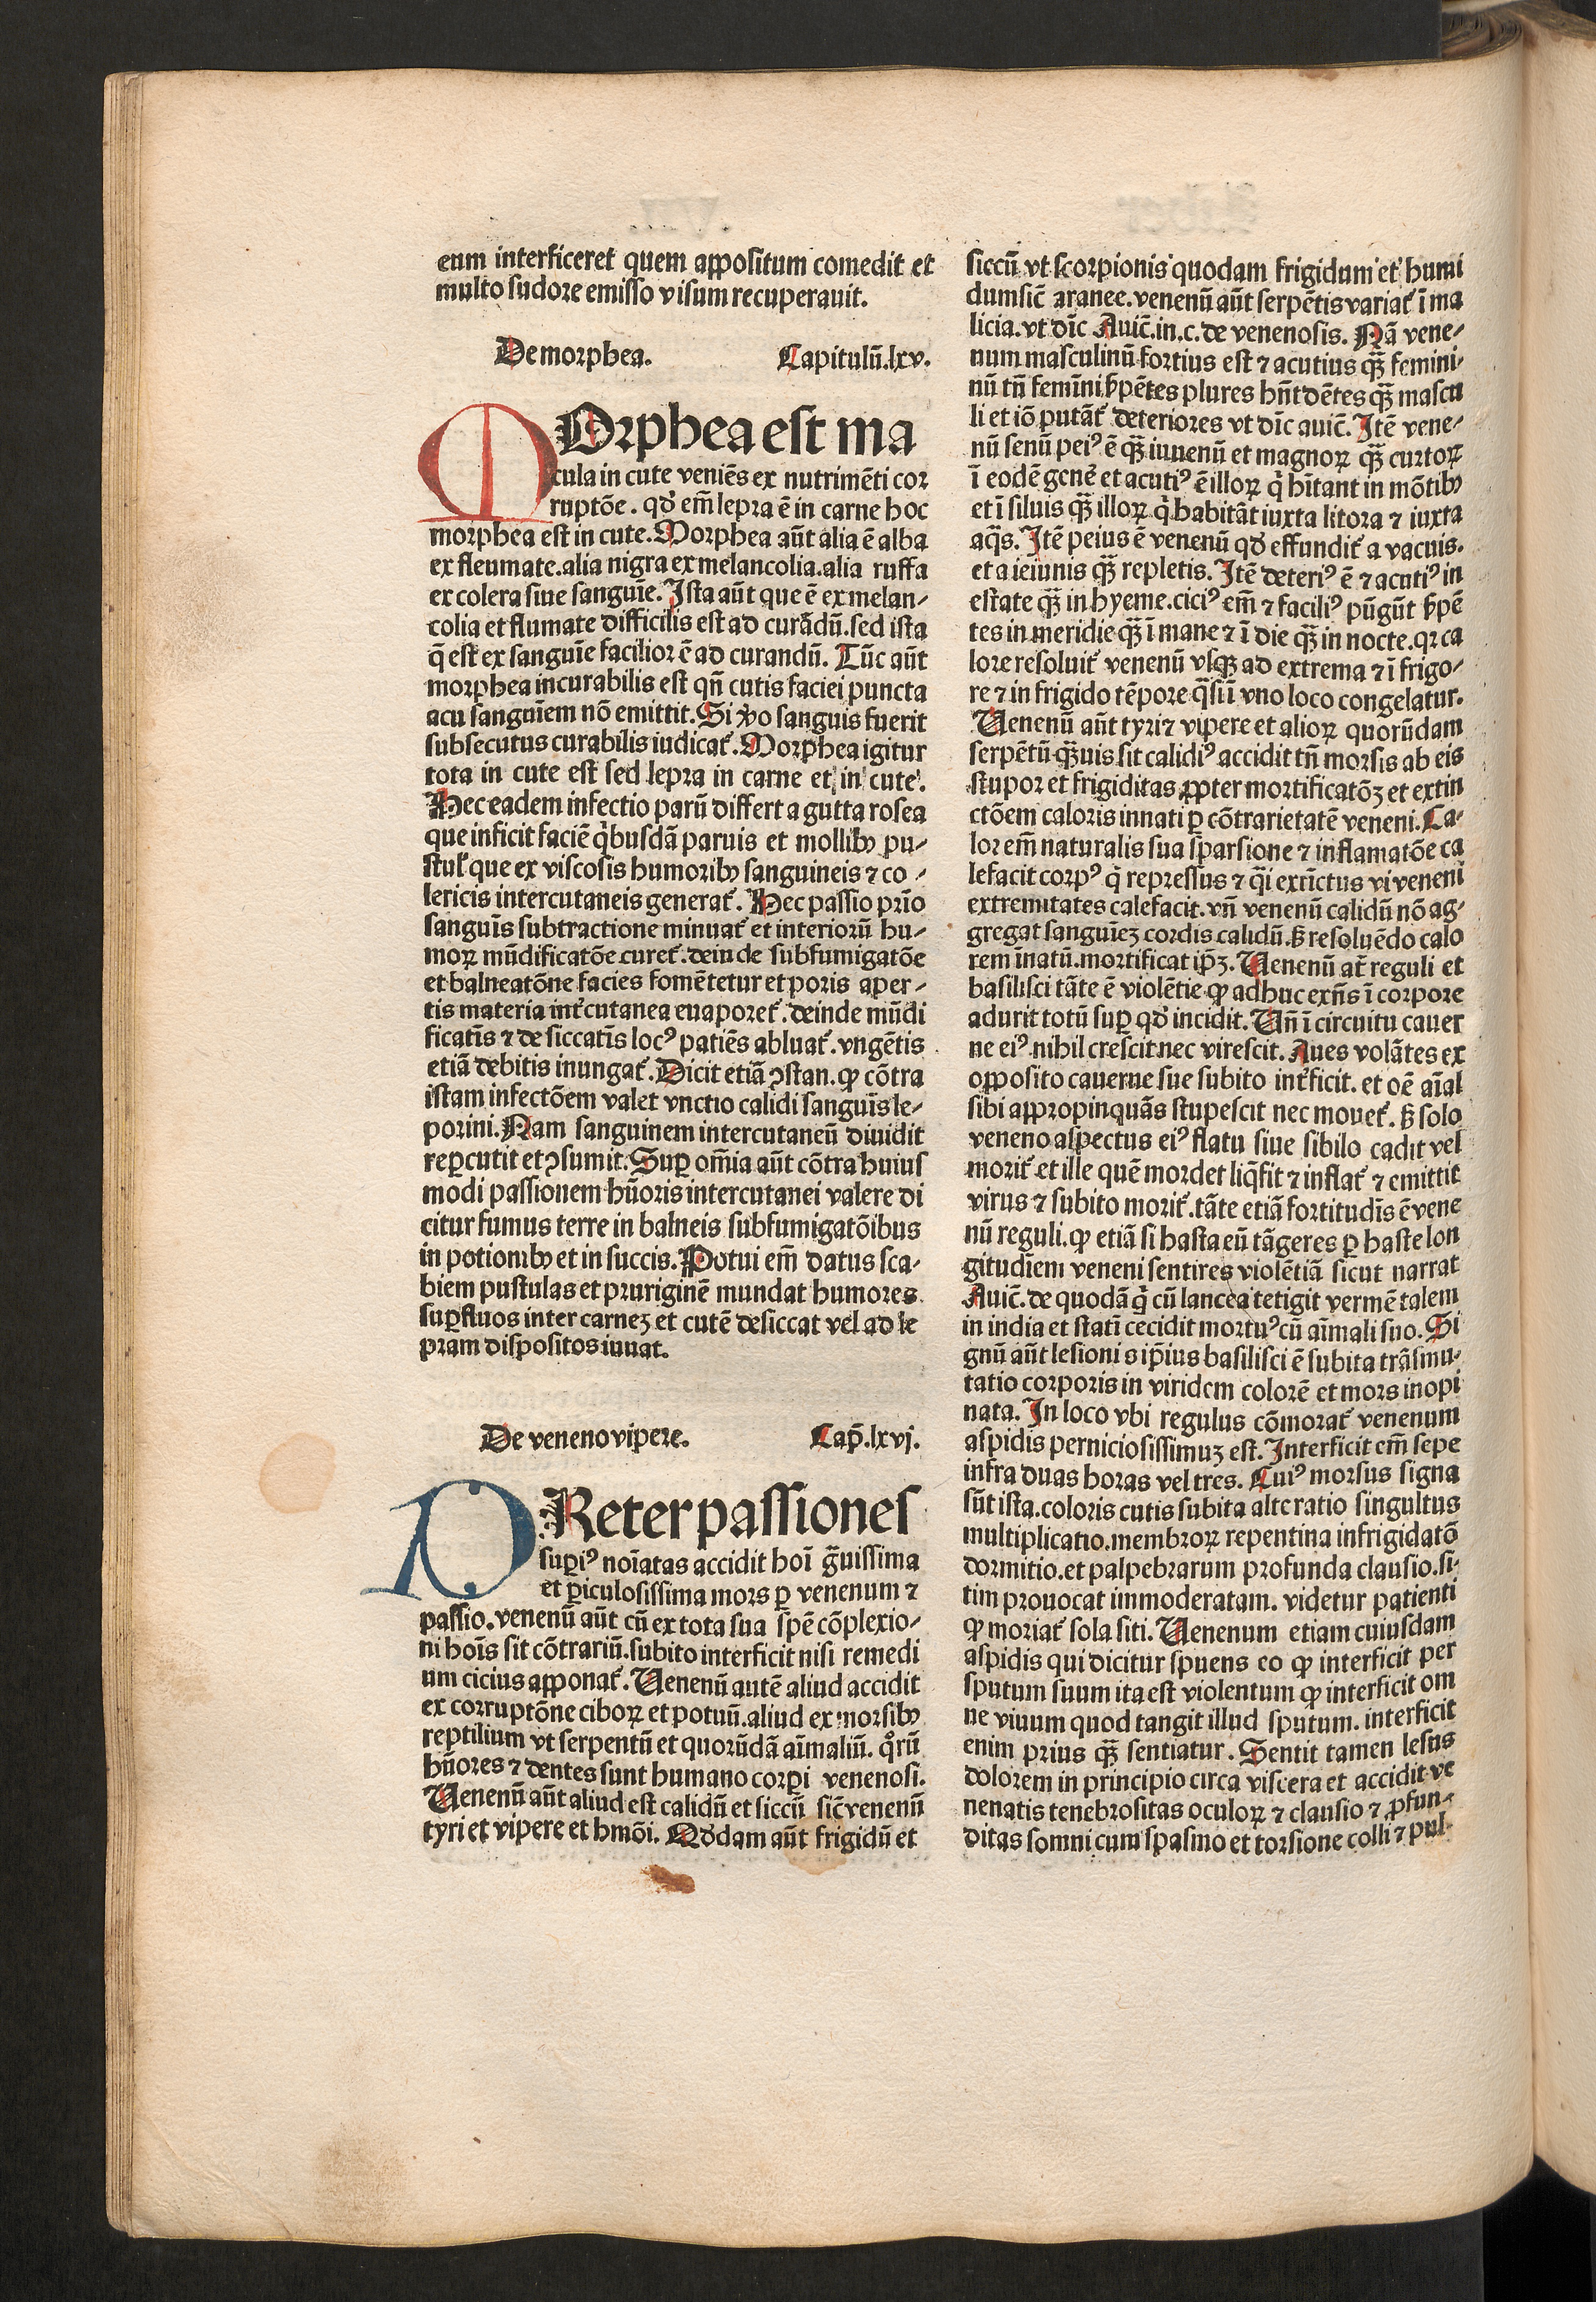 eum interficeret quem appositum comedit et
multo sudore emisso visum recuperauit.
De morphea. Capitulū.lxv.
MOrphea est ma
cula in cute veniēs ex nutrimēti cor
ruptōe. qđ em̄ lepra ē in carne hoc
morphea est in cute. Morphea aūt alia ē alba
ex fleumate. alia nigra ex melancolia. alia ruffa
ex colera siue sanguīe. Ista aūt que ē ex melan-
colia et flumate difficilis est ad curādū. sed ista
q̄ est ex sanguīe facilior ē ad curandū. Tūc aūt
morphea incurabilis est qn̄ cutis faciei puncta
acu sanguīem nō emittit. Si v̉o sanguis fuerit
subsecutus curabilis iudicat᷑. Morphea igitur
tota in cute est sed lepra in carne et in cute.
Hec eadem infectio parū differt a gutta rosea
que inficit faciē q̇busdā paruis et mollibꝰ pu-
stul̓ que ex viscosis humoribꝰ sanguineis ⁊ co-
lericis intercutaneis generat᷑. Hec passio prīo
sanguīs subtractione minuat᷑ et interiorū hu-
moꝝ mūdificatōe curet᷑. deinde subfumigatōe
et balneatōne facies fomētetur et poris aper-
tis materia int᷑cutanea euaporet᷑. deinde mūdi
ficatīs ⁊ desiccatīs locꝰ patiēs abluat᷑. vngētis
etiā debitis inungat᷑. Dicit etiā ꝯstan. ꝙ cōtra
istam infectōem valet vnctio calidi sanguīs le-
porini. Nam sanguinem intercutaneū diuidit
reꝑcutit et ꝯsumit. Suꝑ om̄ia aūt cōtra huius
modi passionem hūoris intercutanei valere di
citur fumus terre in balneis subfumigatōibus
in potionibꝰ et in succis. Potui em̄ datus sca-
biem pustulas et pruriginē mundat humores
suꝑfluos inter carneꝫ et cutē desiccat vel ad le
pram dispositos iuuat.
De veneno vipere. Cap̄.lxvj.
PReter passiones
suꝑiꝰ noīatas accidit hoī g̃uissima
et ꝑiculosissima mors ꝑ venenum ⁊
passio. venenū aūt cū ex tota sua spē cōplexio-
ni hoīs sit cōtrariū. subito interficit nisi remedi
um cicius apponat᷑. Uenenū autē aliud accidit
ex corruptōne ciboꝝ et potuū. aliud ex morsibꝰ
reptilium vt serpentū et quorūdā aīmaliū. qͦrū
hūores ⁊ dentes sunt humano corꝑi venenosi.
Uenenū aūt aliud est calidū et siccū sic̄ venenū
tyri et vipere et hmōi. Qđdam aūt frigidū et
siccū vt scorpionis quodam frigidum et humi
dum sic̄ aranee. venenū aūt serpētis variat᷑ ī ma
licia. vt dīc Auic̄. in. c. de venenosis. Nā vene-
num masculinū fortius est ⁊ acutius qꝫ̄ femini-
nū tn̄ femīni ẜpētes plures hn̄t dētes qꝫ̄ mascu
li et iō putāt᷑ deteriores vt dīc auic̄. Itē vene-
nū senū peiꝰ ē qꝫ̄ iuuenū et magnoꝝ qꝫ̄ curtoꝝ
ī eodē gen̄e et acutiꝰ ē illoꝝ q̇ hītant in mōtibꝰ
et ī siluis qꝫ̄ illoꝝ q̇ habitāt iuxta litora ⁊ iuxta
aq̄s. Itē peius ē venenū qđ effundit᷑ a vacuis.
et a ieiunis qꝫ̄ repletis. Itē deteriꝰ ē ⁊ acutiꝰ in
estate qꝫ̄ in hyeme. ciciꝰ em̄ ⁊ faciliꝰ pūgūt ẜpē
tes in meridie qꝫ̄ ī mane ⁊ ī die qꝫ̄ in nocte. qꝛ ca
lore resoluit᷑ venenū vsqꝫ ad extrema ⁊ ī frigo-
re ⁊ in frigido tēpore q̄si ī vno loco congelatur.
Uenenū aūt tyri ⁊ vipere et alioꝝ quorūdam
serpētū qꝫ̄uis sit calidiꝰ accidit tn̄ morsis ab eis
stupor et frigiditas ꝓpter mortificatōꝫ et extin
ctōem caloris innati ꝑ cōtrarietatē veneni. Ca-
lor em̄ naturalis sua sparsione ⁊ inflamatōe ca
lefacit corpꝰ q̇ repressus ⁊ q̄i extīctus vi veneni
extremitates calefacit. vn̄ venenū calidū nō ag-
gregat sanguīeꝫ cordis calidū. ẜ resoluēdo calo
rem īnatū. mortificat ip̄ꝫ. Uenenū at̄ reguli et
basilisci tāte ē violētie ꝙ adhuc exn̄s ī corpore
adurit totū suꝑ qđ incidit. Un̄ ī circuitu cauer
ne eiꝰ nihil crescit nec virescit. Aues volātes ex
opposito cauerne sue subito int᷑ficit. et oē aīal
sibi appropinquās stupescit nec mouet᷑. ẜ solo
veneno aspectus eiꝰ flatu siue sibilo cadit vel
morit᷑ et ille quē mordet liq̄fit ⁊ inflat᷑ ⁊ emittit
virus ⁊ subito morit᷑. tāte etiā fortitudīs ē vene
nū reguli. ꝙ etiā si hasta eū tāgeres ꝑ haste lon
gitudīem veneni sentires violētiā sicut narrat
Auic̄. de quodā q̇ cū lancea tetigit vermē talem
in india et statī cecidit mortuꝰ cū aīmali suo. Si
gnū aūt lesionis ip̄ius basilisci ē subita trāsmu-
tatio corporis in viridem colorē et mors inopi
nata. In loco vbi regulus cōmorat᷑ venenum
aspidis perniciosissimuꝫ est. Interficit em̄ sepe
infra duas horas vel tres. Cuiꝰ morsus signa
sūt ista. coloris cutis subita alteratio singultus
multiplicatio. membroꝝ repentina infrigidatō
dormitio. et palpebrarum profunda clausio. si-
tim prouocat immoderatam. videtur patienti
ꝙ moriat᷑ sola siti. Uenenum etiam cuiusdam
aspidis qui dicitur spuens eo ꝙ interficit per
sputum suum ita est violentum ꝙ interficit om
ne viuum quod tangit illud sputum. interficit
enim prius qꝫ̄ sentiatur. Sentit tamen lesus
dolorem in principio circa viscera et accidit ve
nenatis tenebrositas oculoꝝ ⁊ clausio ⁊ ꝓfun-
ditas somni cum spasmo et torsione colli ⁊ pul-